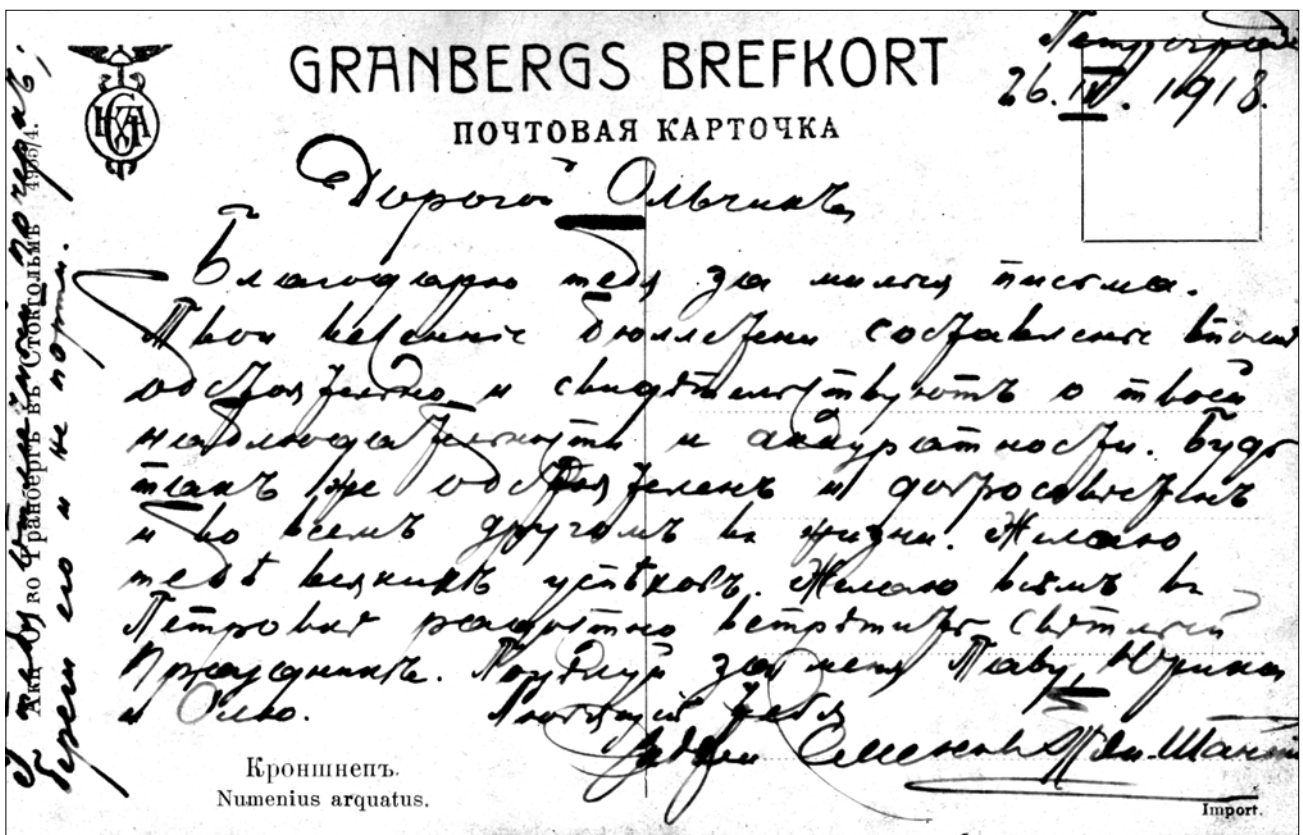 GRANBERGS BREFKORT
ПОЧТОВАЯ КАРТОЧКА
Петроградъ
26.IV.1918.
Дорогой Ольчикъ,
Благодарю тебя за милыя письма.
Твои весенніе бюллетени составлены вполнѣ
обстоятельно и свидѣтельствуютъ о твоей
наблюдательности и аккуратности. Будь
такъ же обстоятеленъ и добросовѣстенъ
и во всемъ другомъ въ жизни. Желаю
тебѣ всякихъ успѣховъ. Желаю всѣмъ въ
Петровкѣ радостно встрѣтить Свѣтлый
Праздникъ. Поцѣлуй за меня Паву, Юрика
и Олю. Любящій тебя
Семеновъ Тян-Шанскій
У тебя отличный почеркъ,
береги его и не порти.
Акц. О-во Гранбергъ въ Стокгольмѣ 4955/4.
Кроншнепъ.
Numenius arquatus.
Import.